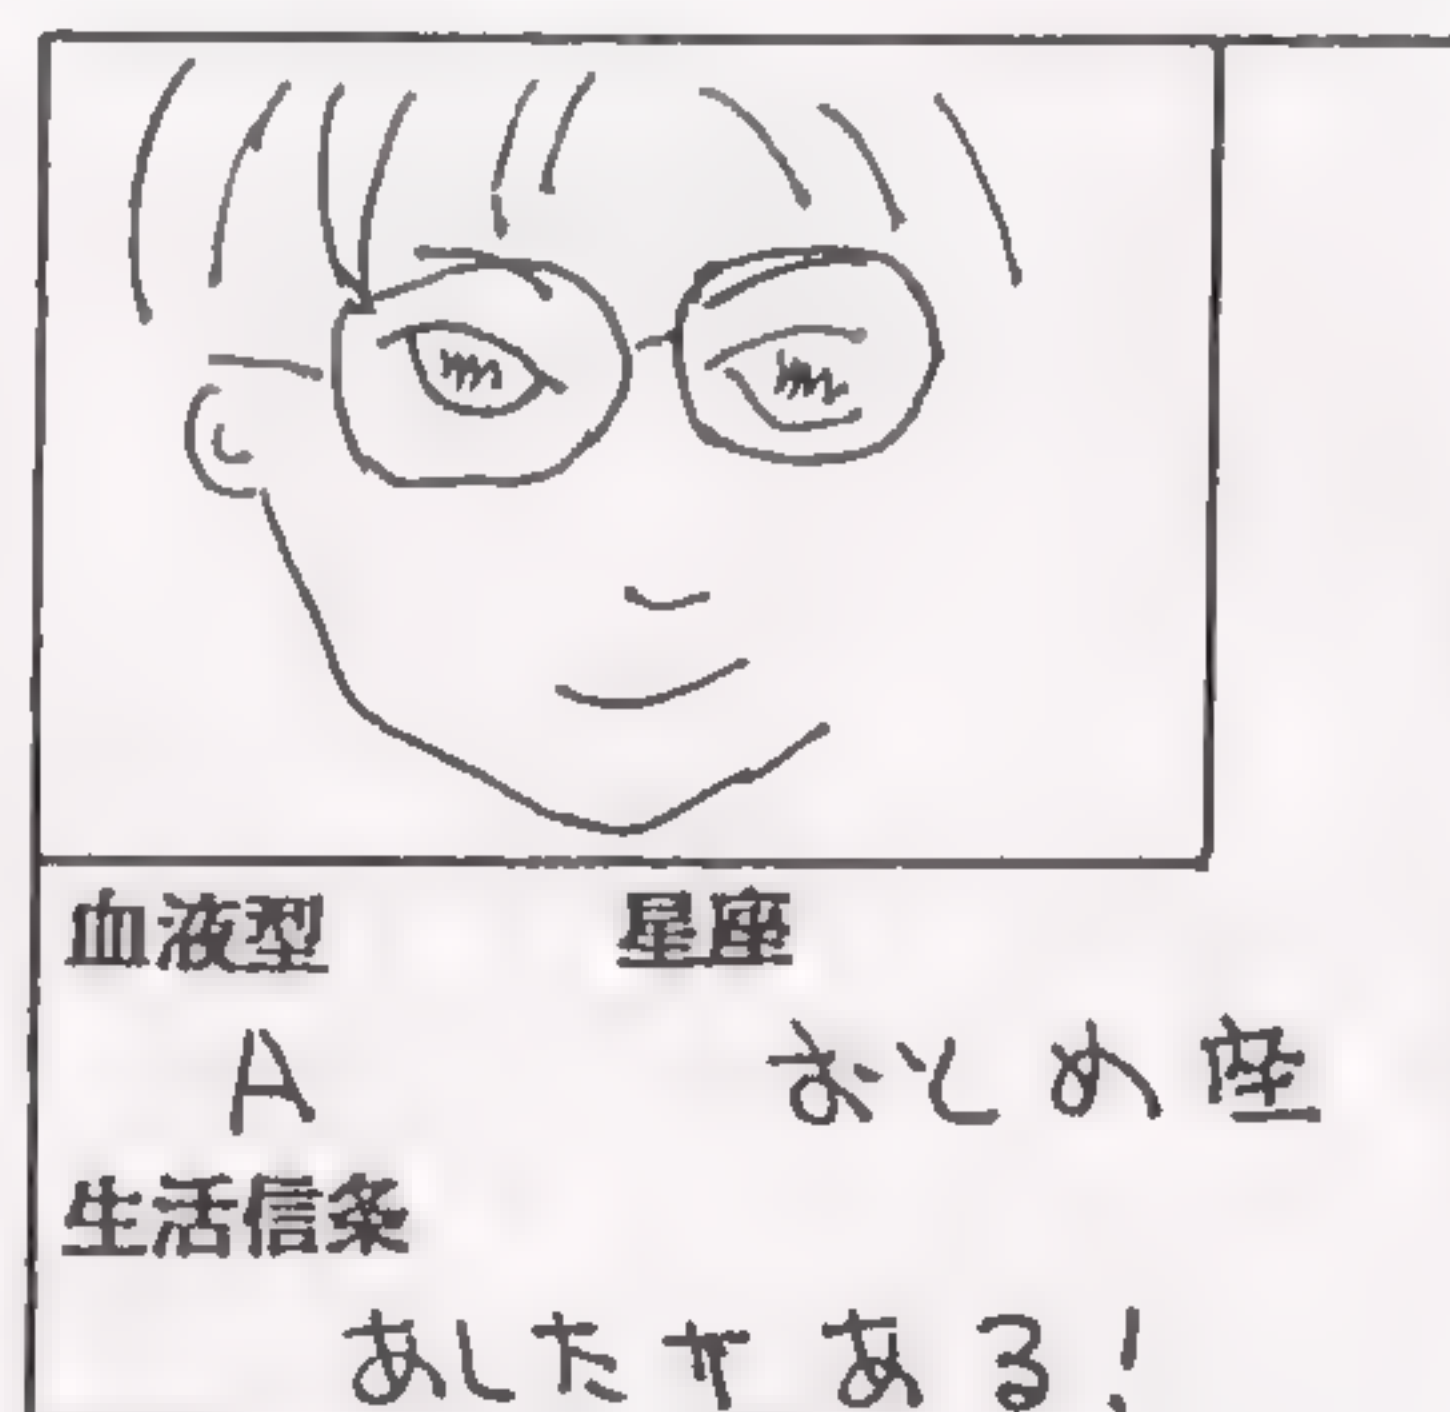 血液型 星座
A おとめ座
生活信条
あしたがある!